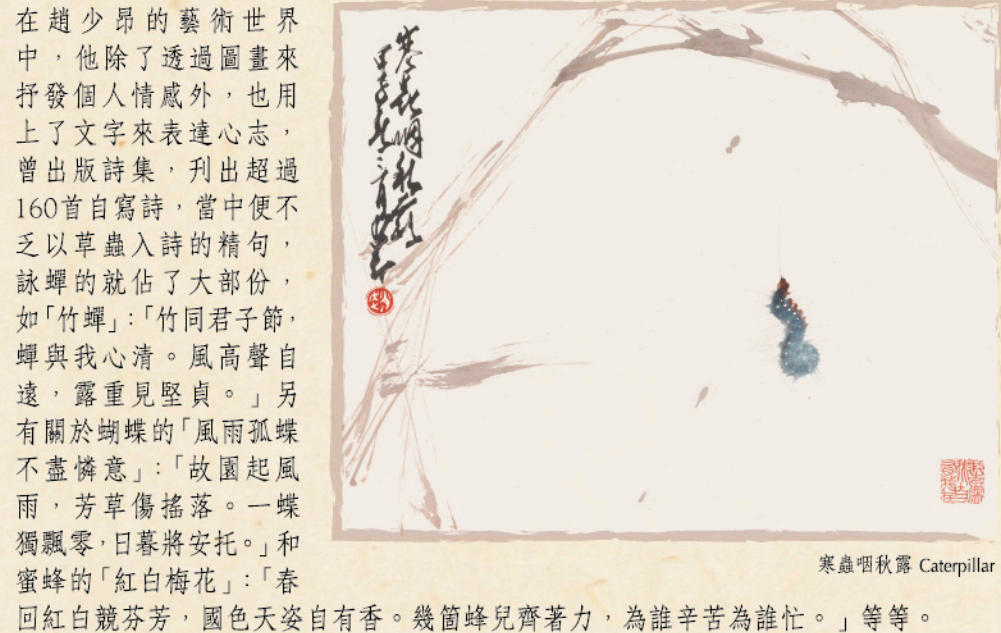 在趙少昂的藝術世界
中，他除了透過圖畫來
抒發個人情感外，也用
上了文字來表達心志，
曾出版詩集，刋出超過
160首自寫詩，當中便不
乏以草蟲入詩的精句，
詠蟬的就佔了大部份，
如「竹蟬」:「竹同君子節，
蟬與我心清。風高聲自
遠，露重見堅貞。」另
有關於蝴蝶的「風雨孤蝶
不盡憐意」:「故園起風
雨，芳草傷搖落。一蝶
獨飄零，日暮將安托。」和
蜜蜂的「紅白梅花」:「春
回紅白競芬芳，國色天姿自有香。幾箇蜂兒齊著力，為誰辛苦為誰忙。」等等。
寒蟲咽秋露
少昂
寒蟲咽秋露 Caterpillar